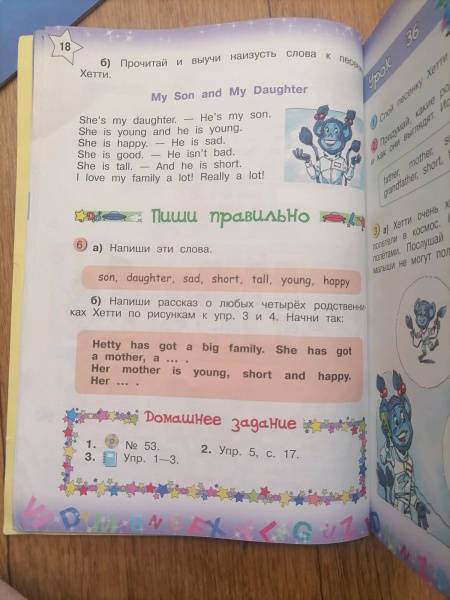 18
б) Прочитай и выучи наизусть слова к песен
Хетти.
My Son and My Daughter
She's my daughter. — He's my son.
She is young and he is young.
She is happy. — He is sad.
She is good. — He isn't bad.
She is tall. — And he is short.
I love my family a lot! Really a lot!
Пиши правильно
6 а) Напиши эти слова.
son, daughter, sad, short, tall, young, happy
б) Напиши рассказ о любых четырёх родственни-
ках Хетти по рисункам к упр. 3 и 4. Начни так:
Hetty has got a big family. She has got
a mother, a ... .
Her mother is young, short and happy.
Her ... .
Домашнее задание
1. № 53.
2. Упр. 5, с. 17.
3. Упр. 1—3.
Урок 36
1 Спой песенку Хетти
2 Придумай, какие ро
и как они выглядят. Ис
father, mother, s
grandfather, short,
3 а) Хетти очень х
полетели в космос.
полётами. Послушай
малыши не могут пол